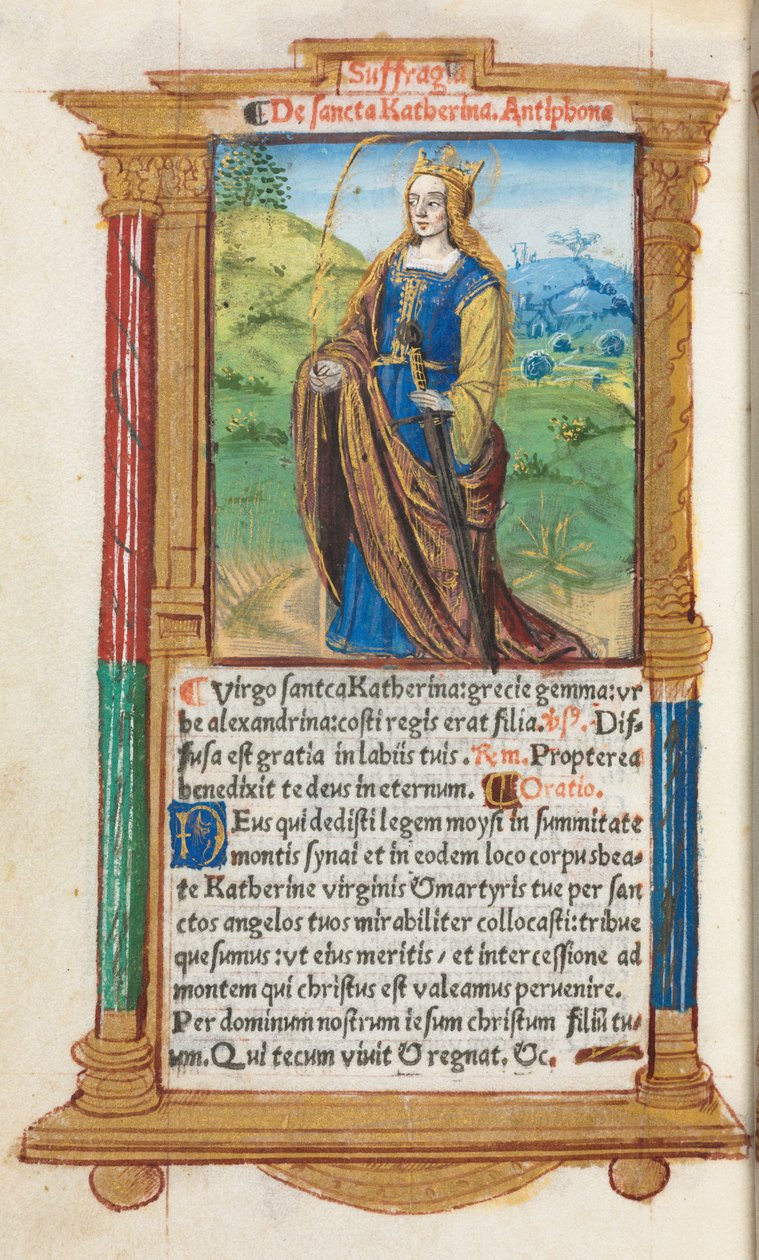 Suffragia
De sancta Katherina. Antiphona
Virgo santca Katherina: grecie gemma: vr
be alexandrina: costi regis erat filia. ℣. Dif-
fusa est gratia in labiis tuis. ℞m. Propterea
benedixit te deus in eternum. Oratio.
DEus qui dedisti legem moysi in summitate
montis synai et in eodem loco corpus bea-
te Katherine virginis & martyris tue per san
ctos angelos tuos mirabiliter collocasti: tribue
quesumus: vt eius meritis / et intercessione ad
montem qui christus est valeamus peruenire.
Per dominum nostrum iesum christum filiũ tu-
um. Qui tecum viuit & regnat. &c.